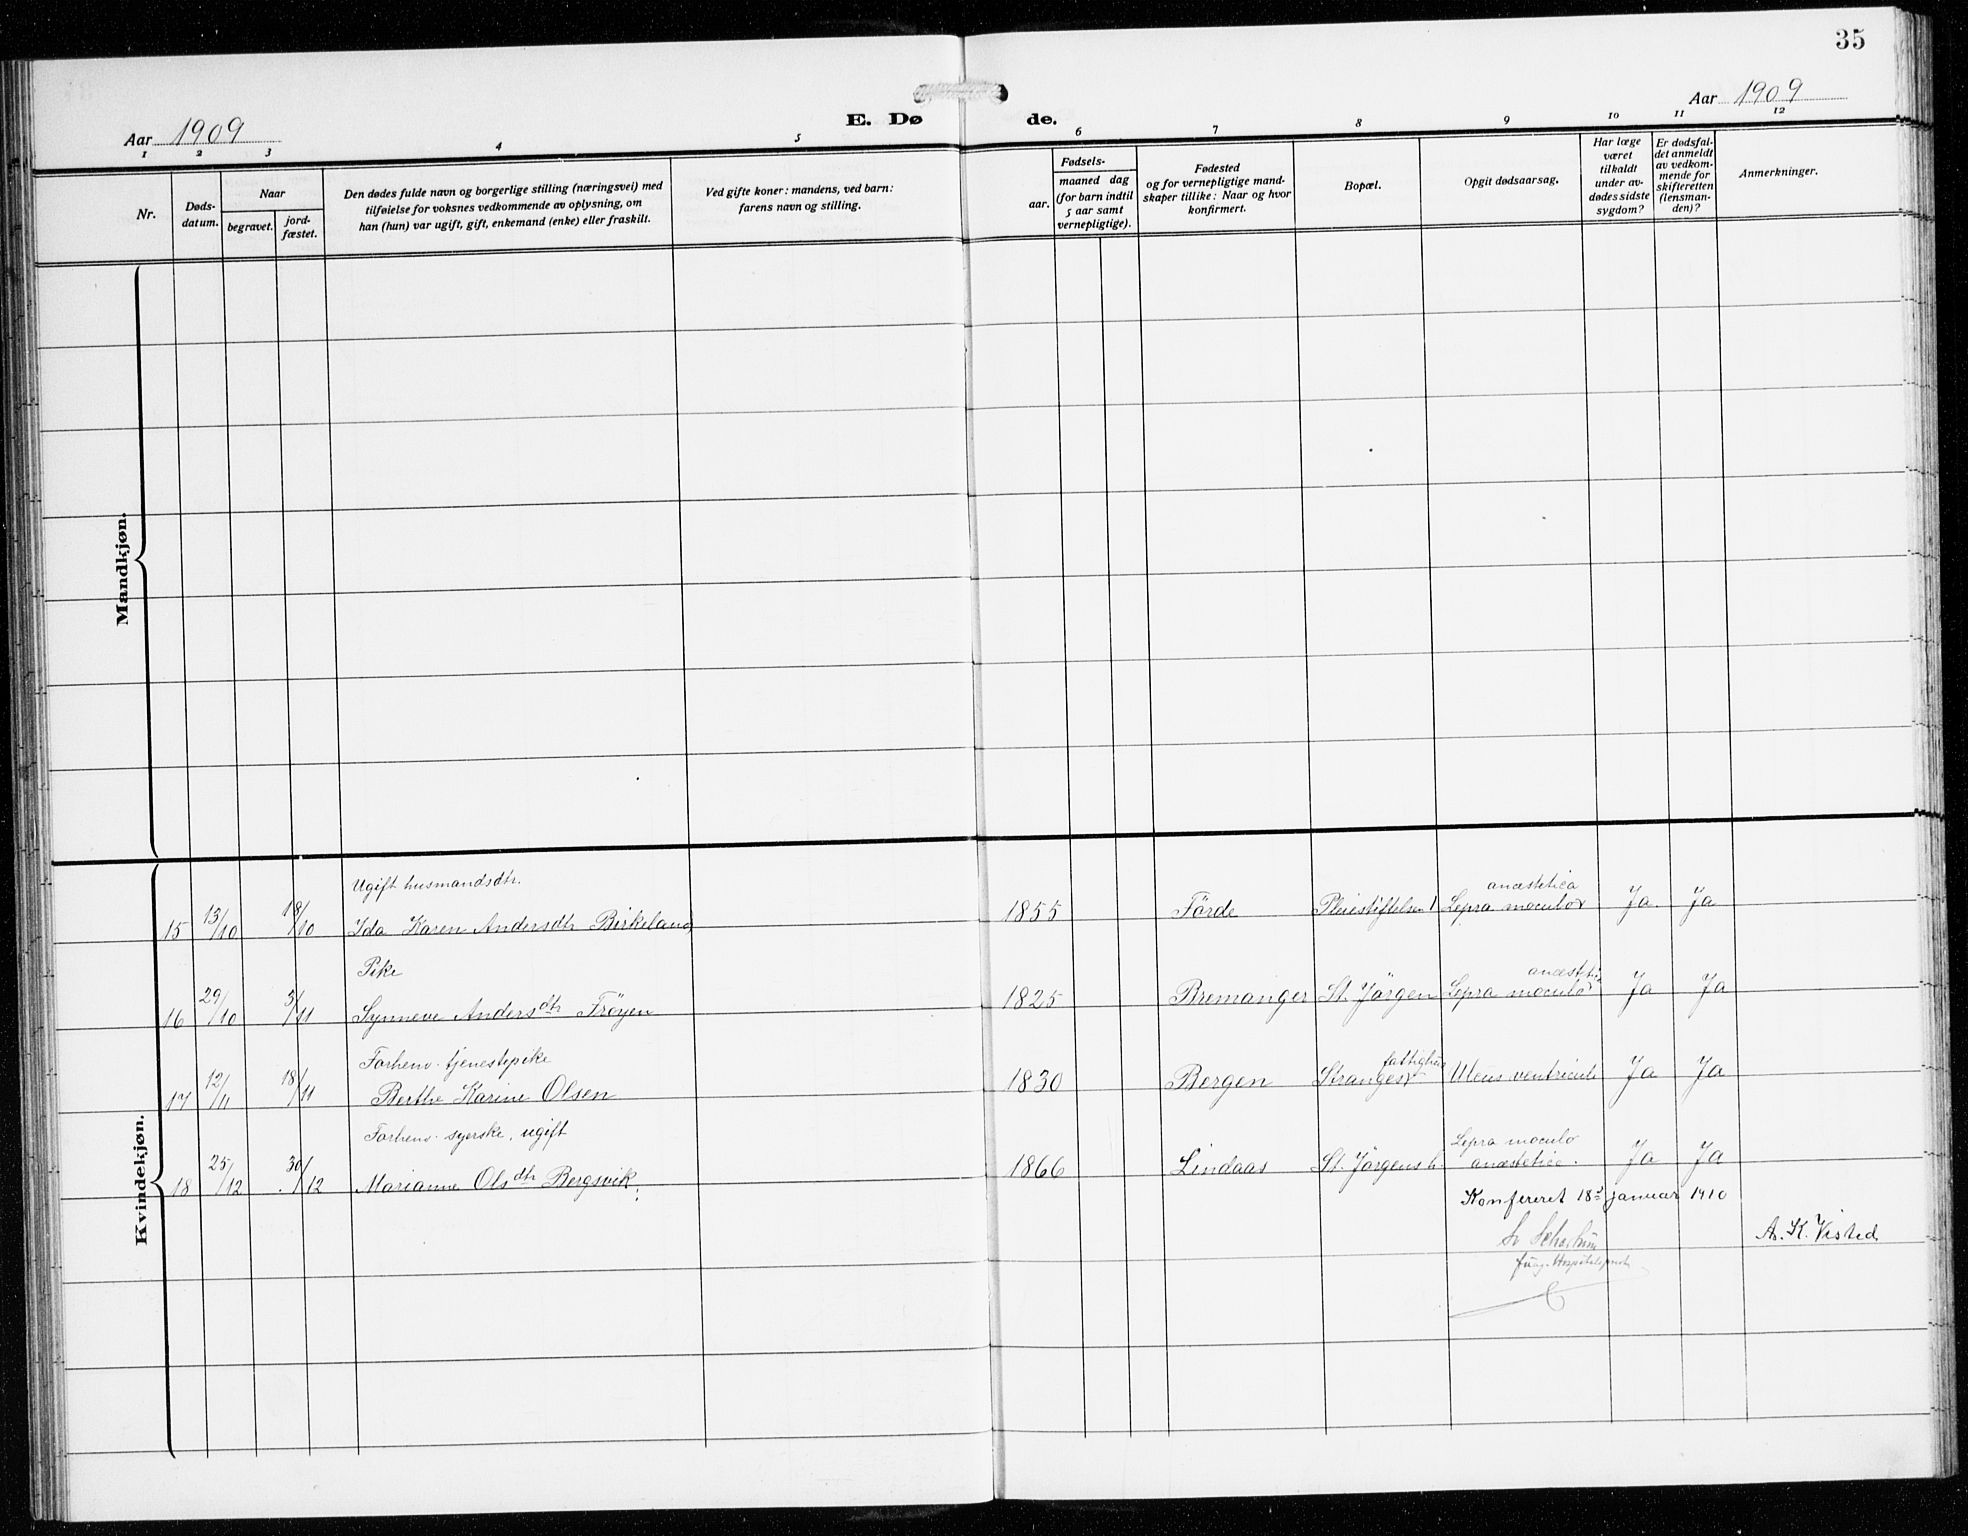 35
Aar 1909
E. Dø de.
Aar 1909
1 2 3 4 5 6 7 8 9 10 11 12
Nr.
Døds-
datum.
Naar
begravet.
jord-
fæstet.
Den dødes fulde navn og borgerlige stilling (næringsvei) med
tilføielse for voksnes vedkommende av oplysning, om
han (hun) var ugift, gift, enkemand (enke) eller fraskilt.
Ved gifte koner: mandens, ved barn:
farens navn og stilling.
Fødsels-
aar.
maaned dag
(for barn indtil
5 aar samt
vernepligtige).
Fødested
og for vernepligtige mand-
skaper tillike: Naar og hvor
konfirmert.
Bopæl.
Opgit dødsaarsag.
Har læge
været
tilkaldt
under av-
dødes sidste
sygdom?
Er dødsfal-
det anmeldt
av vedkom-
mende for
skifteretten
(lensman-
den)?
Anmerkninger.
Mandkjøn.
Kvindekjøn.
Ugift husmandsdtr. anæstetica
15 13/10 18/10 Ida Karen Andersdtr Birkeland 1855 Förde Pleiestiftelsen 1 Lepra maculo Ja Ja
Pike anæstetica
16 29/10 3/11 Synneve Andersdtr Fröyen 1825 Bremanger St. Jörgen Lepra maculo Ja Ja
Forhenv. tjenestepike fattighus
17 12/11 18/11 Berthe Karine Olsen 1830 Bergen Stranges Ulcus ventriculi Ja Ja
Forhenv. syerske, ugift Lepra maculo
18 25/12 30/12 Marianne Olsdtr Bergsvik. 1866 Lindaas St. Jörgensh. anæstetica. Ja Ja
Konfereret 18 januar 1910
A. K. Visted
fung. Hospitalsprest